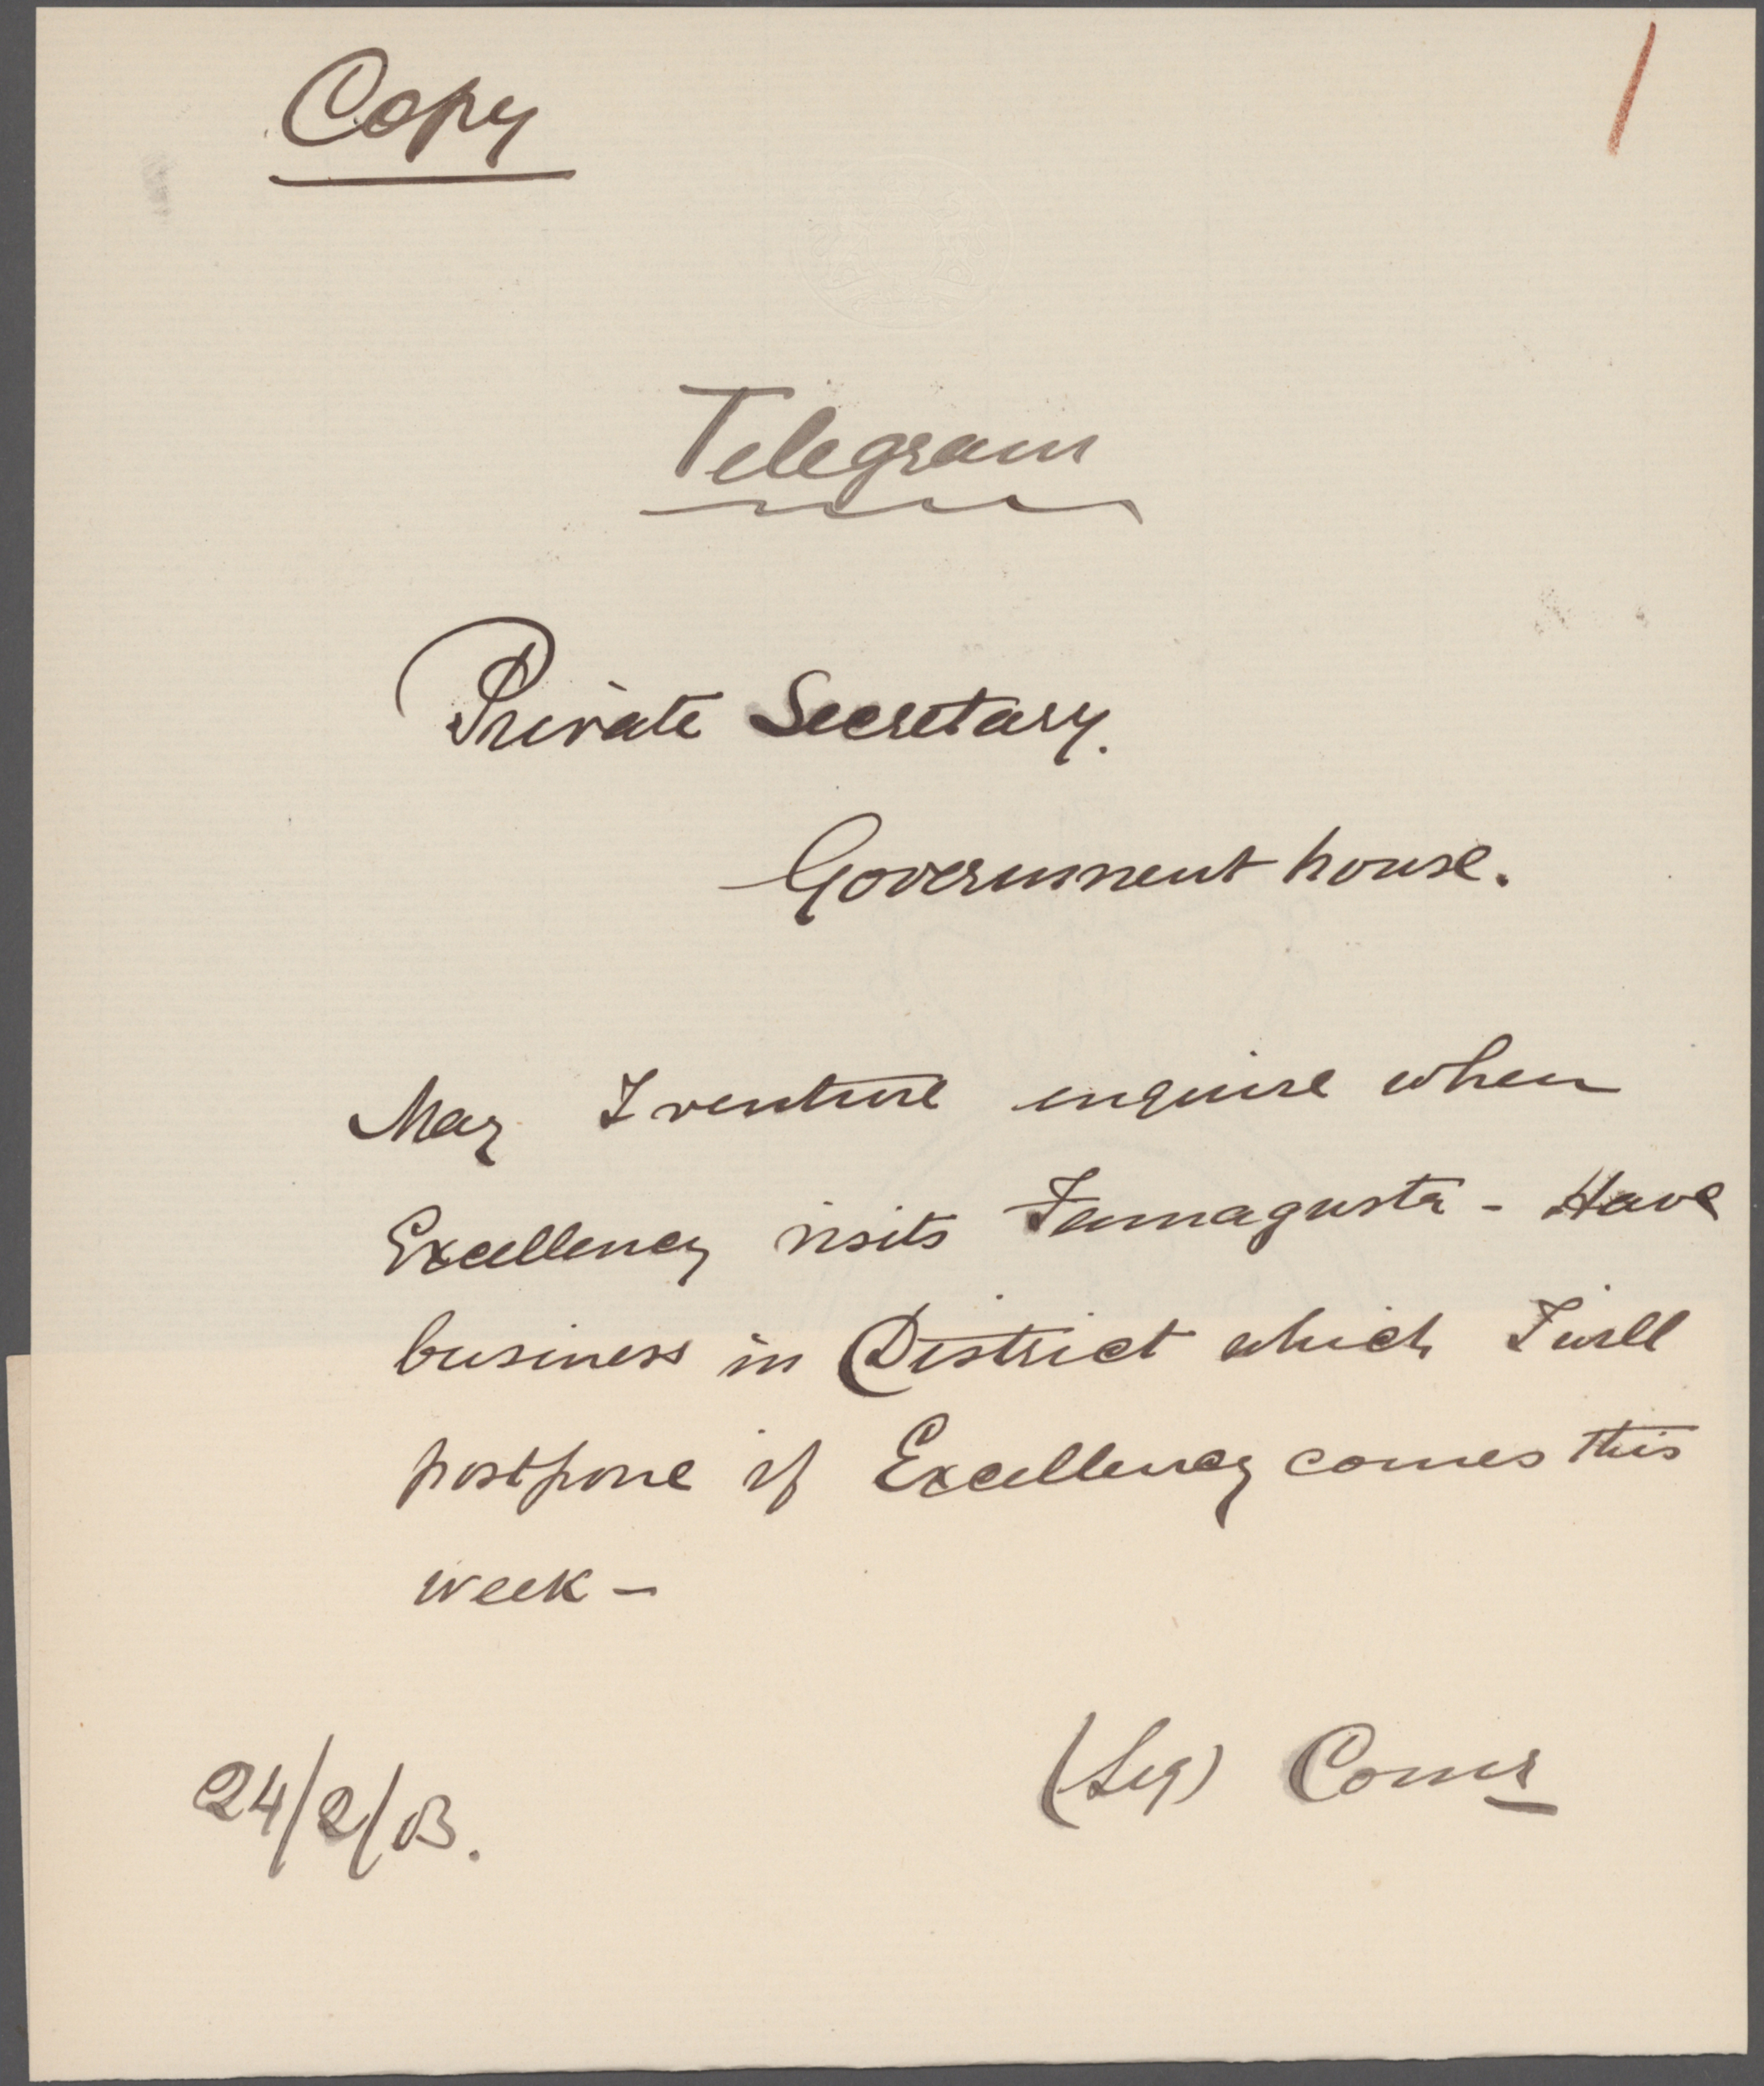 Copy
1
Telegram
Private Secretary.
Government house.
May I venture enquire when
Excellency visits Famagusta - Have
business in District which I will
postpone if Excellency comes this
week -
(Sig) Comr
24/2/03.